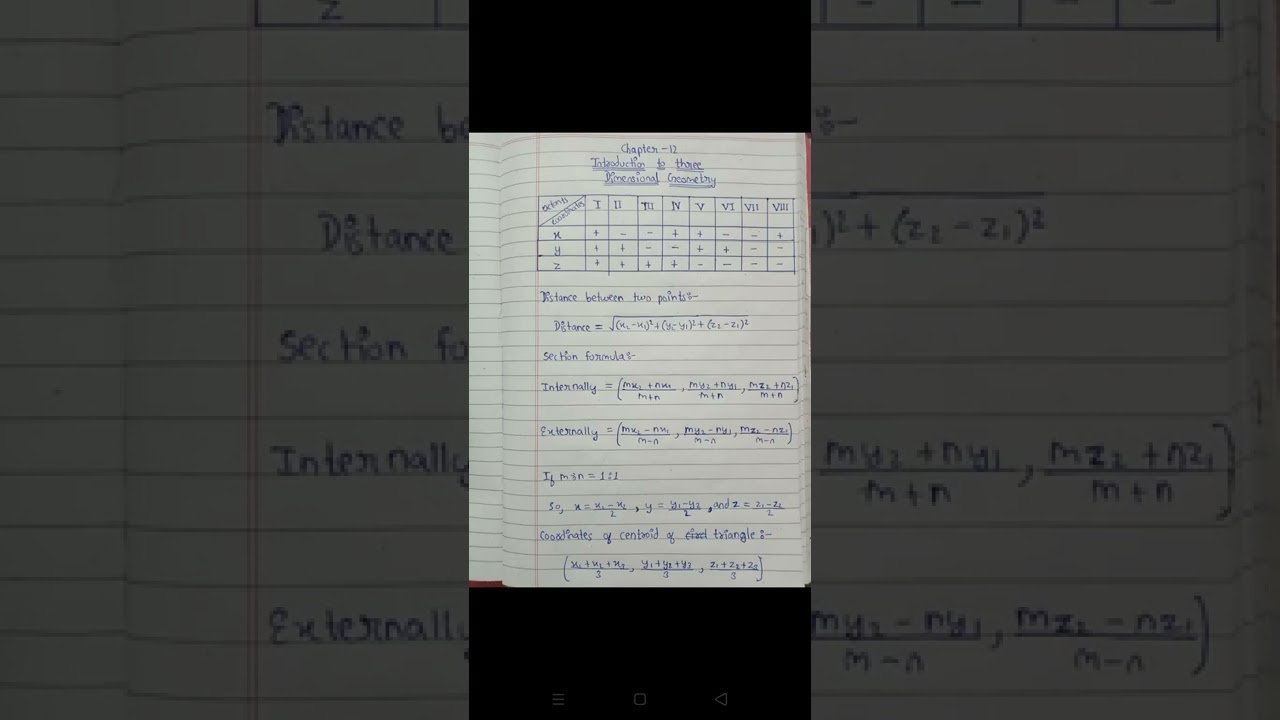 Chapter-12
Introduction to three
Dimensional Geometry
Octants Coordinates I II III IV V VI VII VIII
x + - - + + - - +
y + + - - + + - -
z + + + + - - - -
Distance between two points:-
Distance = √(x₂-x₁)²+(y₂-y₁)²+(z₂-z₁)²
Section formula:-
Internally = (mx₂+nx₁/m+n, my₂+ny₁/m+n, mz₂+nz₁/m+n)
Externally = (mx₂-nx₁/m-n, my₂-ny₁/m-n, mz₂-nz₁/m-n)
If m:n = 1:1
So, x = x₁-x₂/2, y = y₁-y₂/2, and z = z₁-z₂/2
Coordinates of centroid of triangle:-
(x₁+x₂+x₃/3, y₁+y₂+y₃/3, z₁+z₂+z₃/3)